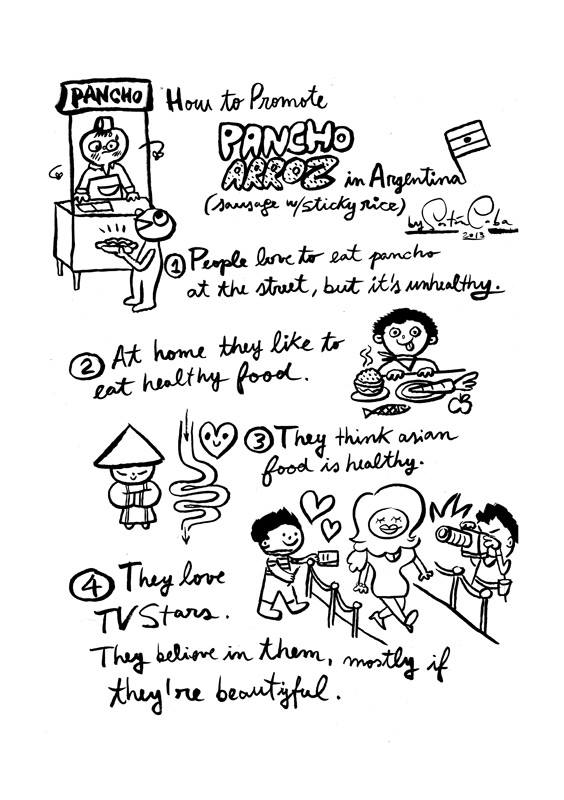 PANCHO
How to Promote
PANCHO
ARROZ in Argentina
(sausage w/sticky rice)
by
2013
1 People love to eat pancho
at the street, but it's unhealthy.
2 At home they like to
eat healthy food.
3 They think asian
food is healthy.
4 They love
TV Stars.
They believe in them, mostly if
they're beautyful.